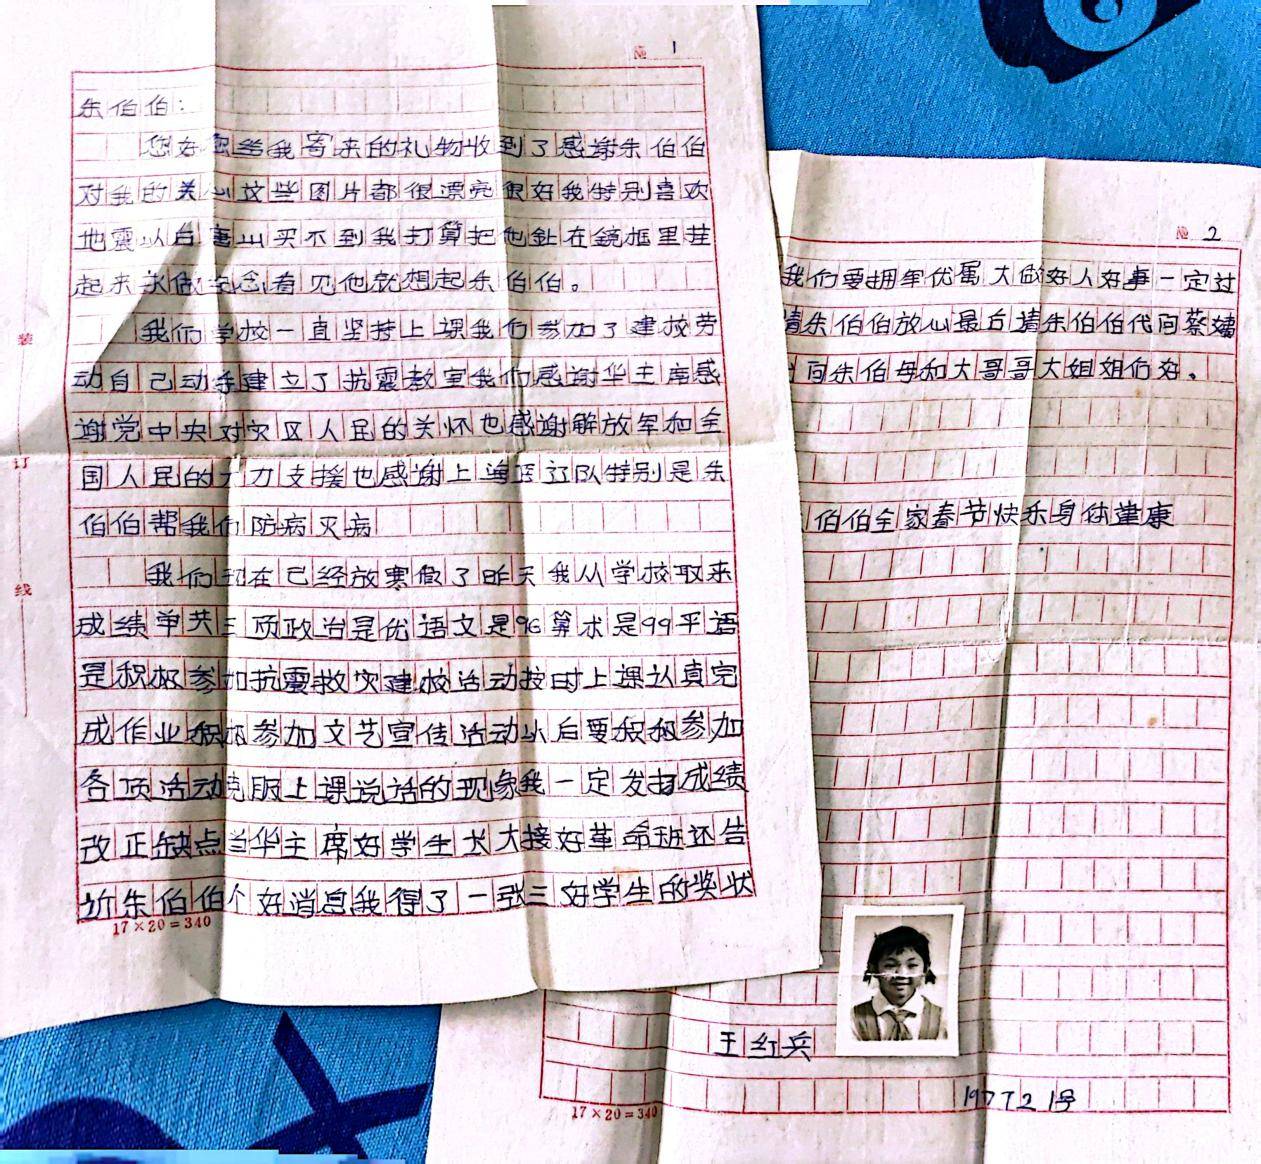 № 1
朱伯伯：
您好您给我寄来的礼物收到了感谢朱伯伯
对我的关心这些图片都很漂亮很好我特别喜欢
地震以后唐山买不到我打算把他钉在镜框里挂
起来永做纪念看见他就想起朱伯伯。
我们学校一直坚持上课我们参加了建校劳
动自己动手建立了抗震教室我们感谢华主席感
谢党中央对灾区人民的关怀也感谢解放军和全
国人民的大力支援也感谢上海医疗队特别是朱
伯伯帮我们防病灭病
我们现在已经放寒假了昨天我从学校取来
成绩单共三项政治是优语文是96算术是99平语
是积极参加抗震救灾建校活动按时上课认真完
成作业积极参加文艺宣传活动以后要积极参加
各项活动克服上课说话的现象我一定发扬成绩
改正缺点当华主席好学生长大接好革命班还告
诉朱伯伯个好消息我得了一张三好学生的奖状
17×20=340
装
订
线
№ 2
我们要拥军优属大做好人好事一定过
请朱伯伯放心最后请朱伯伯代问蔡
问朱伯母和大哥哥大姐姐们好。
伯伯全家春节快乐身体健康
王红兵
1977 2 1号
17×20=340